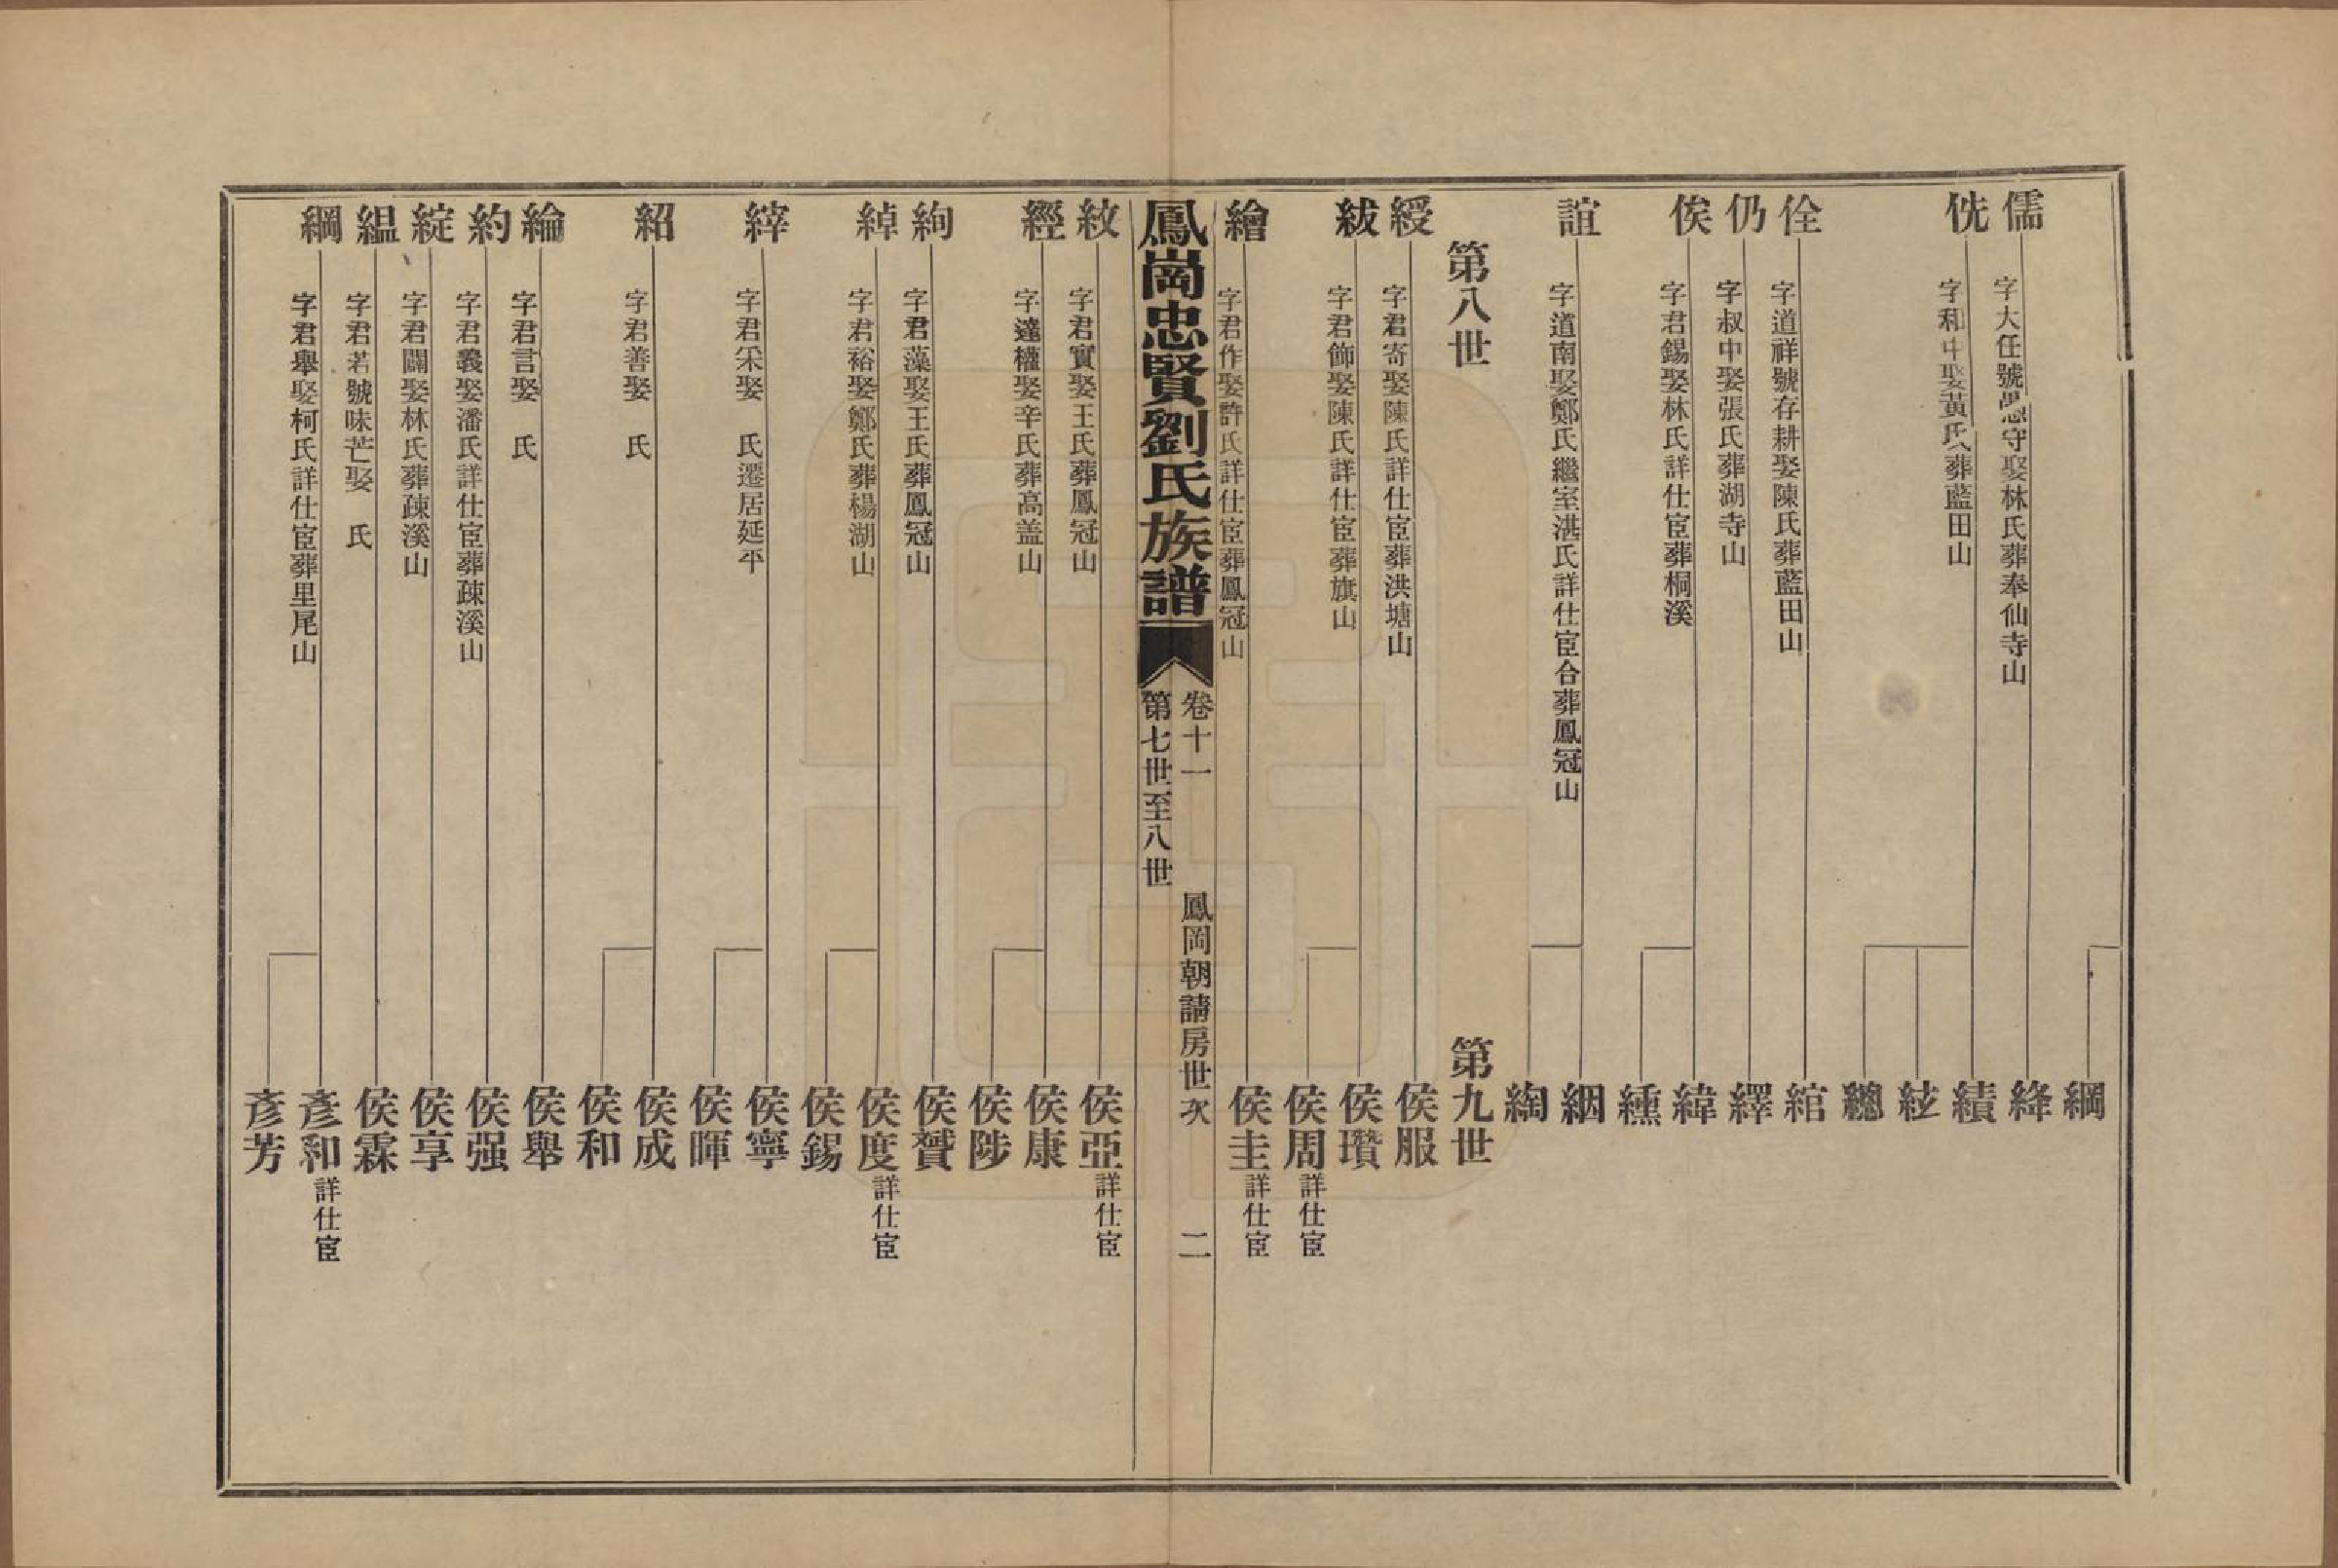 綱
儒
字大任號愚守娶林氏葬奉仙寺山
絳
侁
字和中娶黃氏葬藍田山
績
紶
總
佺
字道祥號存耕娶陳氏葬藍田山
綰
仍
字叔中娶張氏葬湖寺山
繹
俟
字君錫娶林氏詳仕宦葬桐溪
緯
纁
誼
字道南娶鄭氏繼室湛氏詳仕宦合葬鳳冠山
絪
綯
第八世
第九世
綬
字君寄娶陳氏詳仕宦葬洪塘山
侯服
紱
字君飾娶陳氏詳仕宦葬旗山
侯瓚
侯周詳仕宦
繪
字君作娶許氏詳仕宦葬鳳冠山
侯圭詳仕宦
鳳崗忠賢劉氏族譜
卷十一
鳳岡朝請房世次
二
第七世至八世
紋
字君實娶王氏葬鳳冠山
侯亞詳仕宦
經
字達權娶辛氏葬高盖山
侯康
侯陟
絢
字君藻娶王氏葬鳳冠山
侯贇
綽
字君裕娶鄭氏葬楊湖山
侯度詳仕宦
侯錫
縡
字君采娶 氏遷居延平
侯寧
侯暉
紹
字君善娶 氏
侯成
侯和
綸
字君言娶 氏
侯舉
約
字君義娶潘氏詳仕宦葬疎溪山
侯强
綻
字君闢娶林氏葬疎溪山
侯享
緼
字君若號味芒娶 氏
侯霖
綱
字君舉娶柯氏詳仕宦葬里尾山
彥和詳仕宦
彥芳